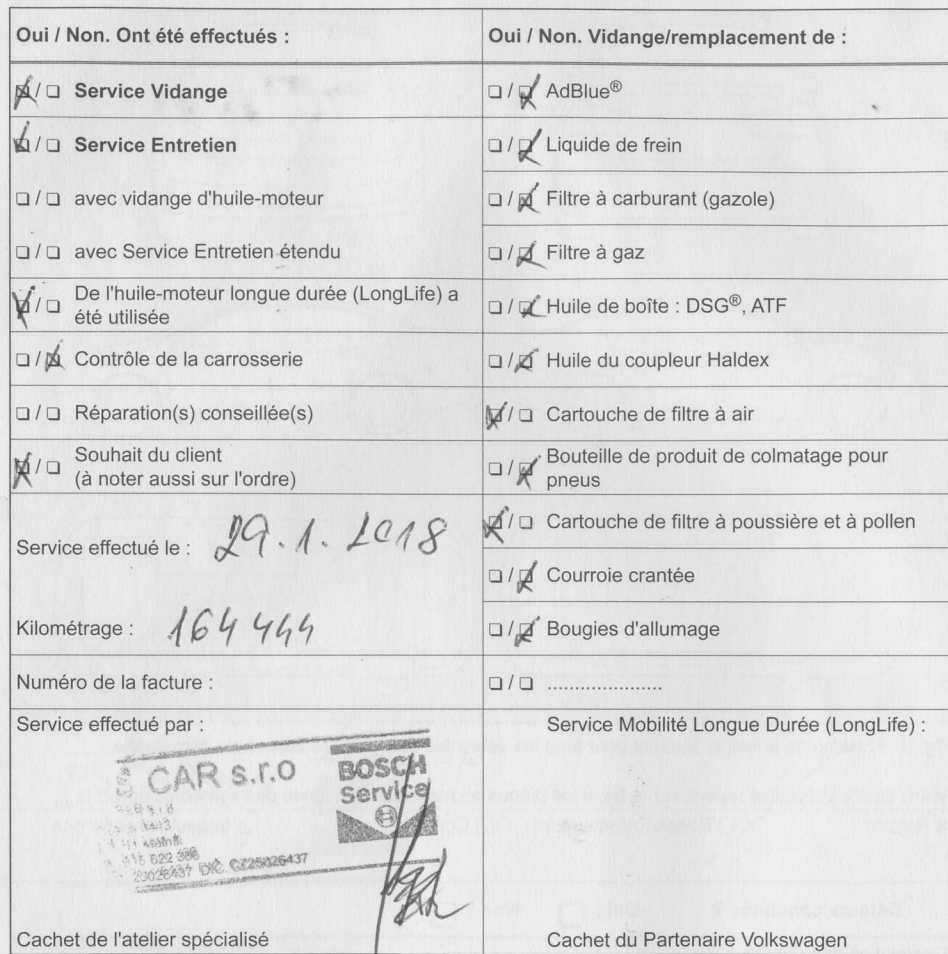 Oui / Non. Ont été effectués :
☒ / ☐ Service Vidange
☒ / ☐ Service Entretien
☐ / ☐ avec vidange d'huile-moteur
☐ / ☐ avec Service Entretien étendu
☒ / ☐ De l'huile-moteur longue durée (LongLife) a
été utilisée
☐ / ☒ Contrôle de la carrosserie
☐ / ☐ Réparation(s) conseillée(s)
☒ / ☐ Souhait du client
(à noter aussi sur l'ordre)
Service effectué le : 29.1.2018
Kilométrage : 164 444
Numéro de la facture :
Service effectué par :
CAR s.r.o
BOSCH
Service
622 386
25026437 DIČ: CZ25026437
Cachet de l'atelier spécialisé
Oui / Non. Vidange/remplacement de :
☐ / ☒ AdBlue®
☐ / ☒ Liquide de frein
☐ / ☒ Filtre à carburant (gazole)
☐ / ☒ Filtre à gaz
☐ / ☒ Huile de boîte : DSG®, ATF
☐ / ☒ Huile du coupleur Haldex
☒ / ☐ Cartouche de filtre à air
☐ / ☒ Bouteille de produit de colmatage pour
pneus
☒ / ☐ Cartouche de filtre à poussière et à pollen
☐ / ☒ Courroie crantée
☐ / ☒ Bougies d'allumage
☐ / ☐ .....................
Service Mobilité Longue Durée (LongLife) :
Cachet du Partenaire Volkswagen